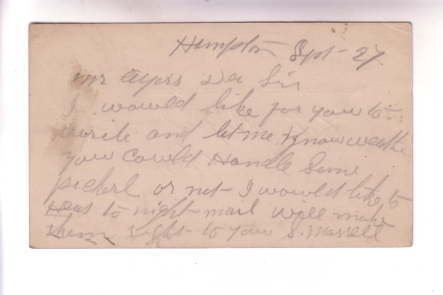 Hampton Sept 27
mr Ayers Dea Sir
I wauld like for you to
write and let me Know weathe
you Could Handle Some
or not I would like to
Hear to night mail will make
them right to you S.